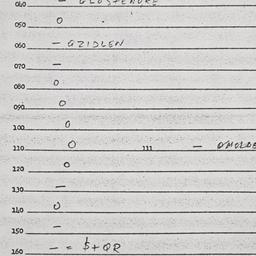 040
050 0
060 — GZIDLEN
070 —
080 0
090 0
100 0
110 0 111 —
120 0
130 —
140 0
150 —
160 — = $+QR